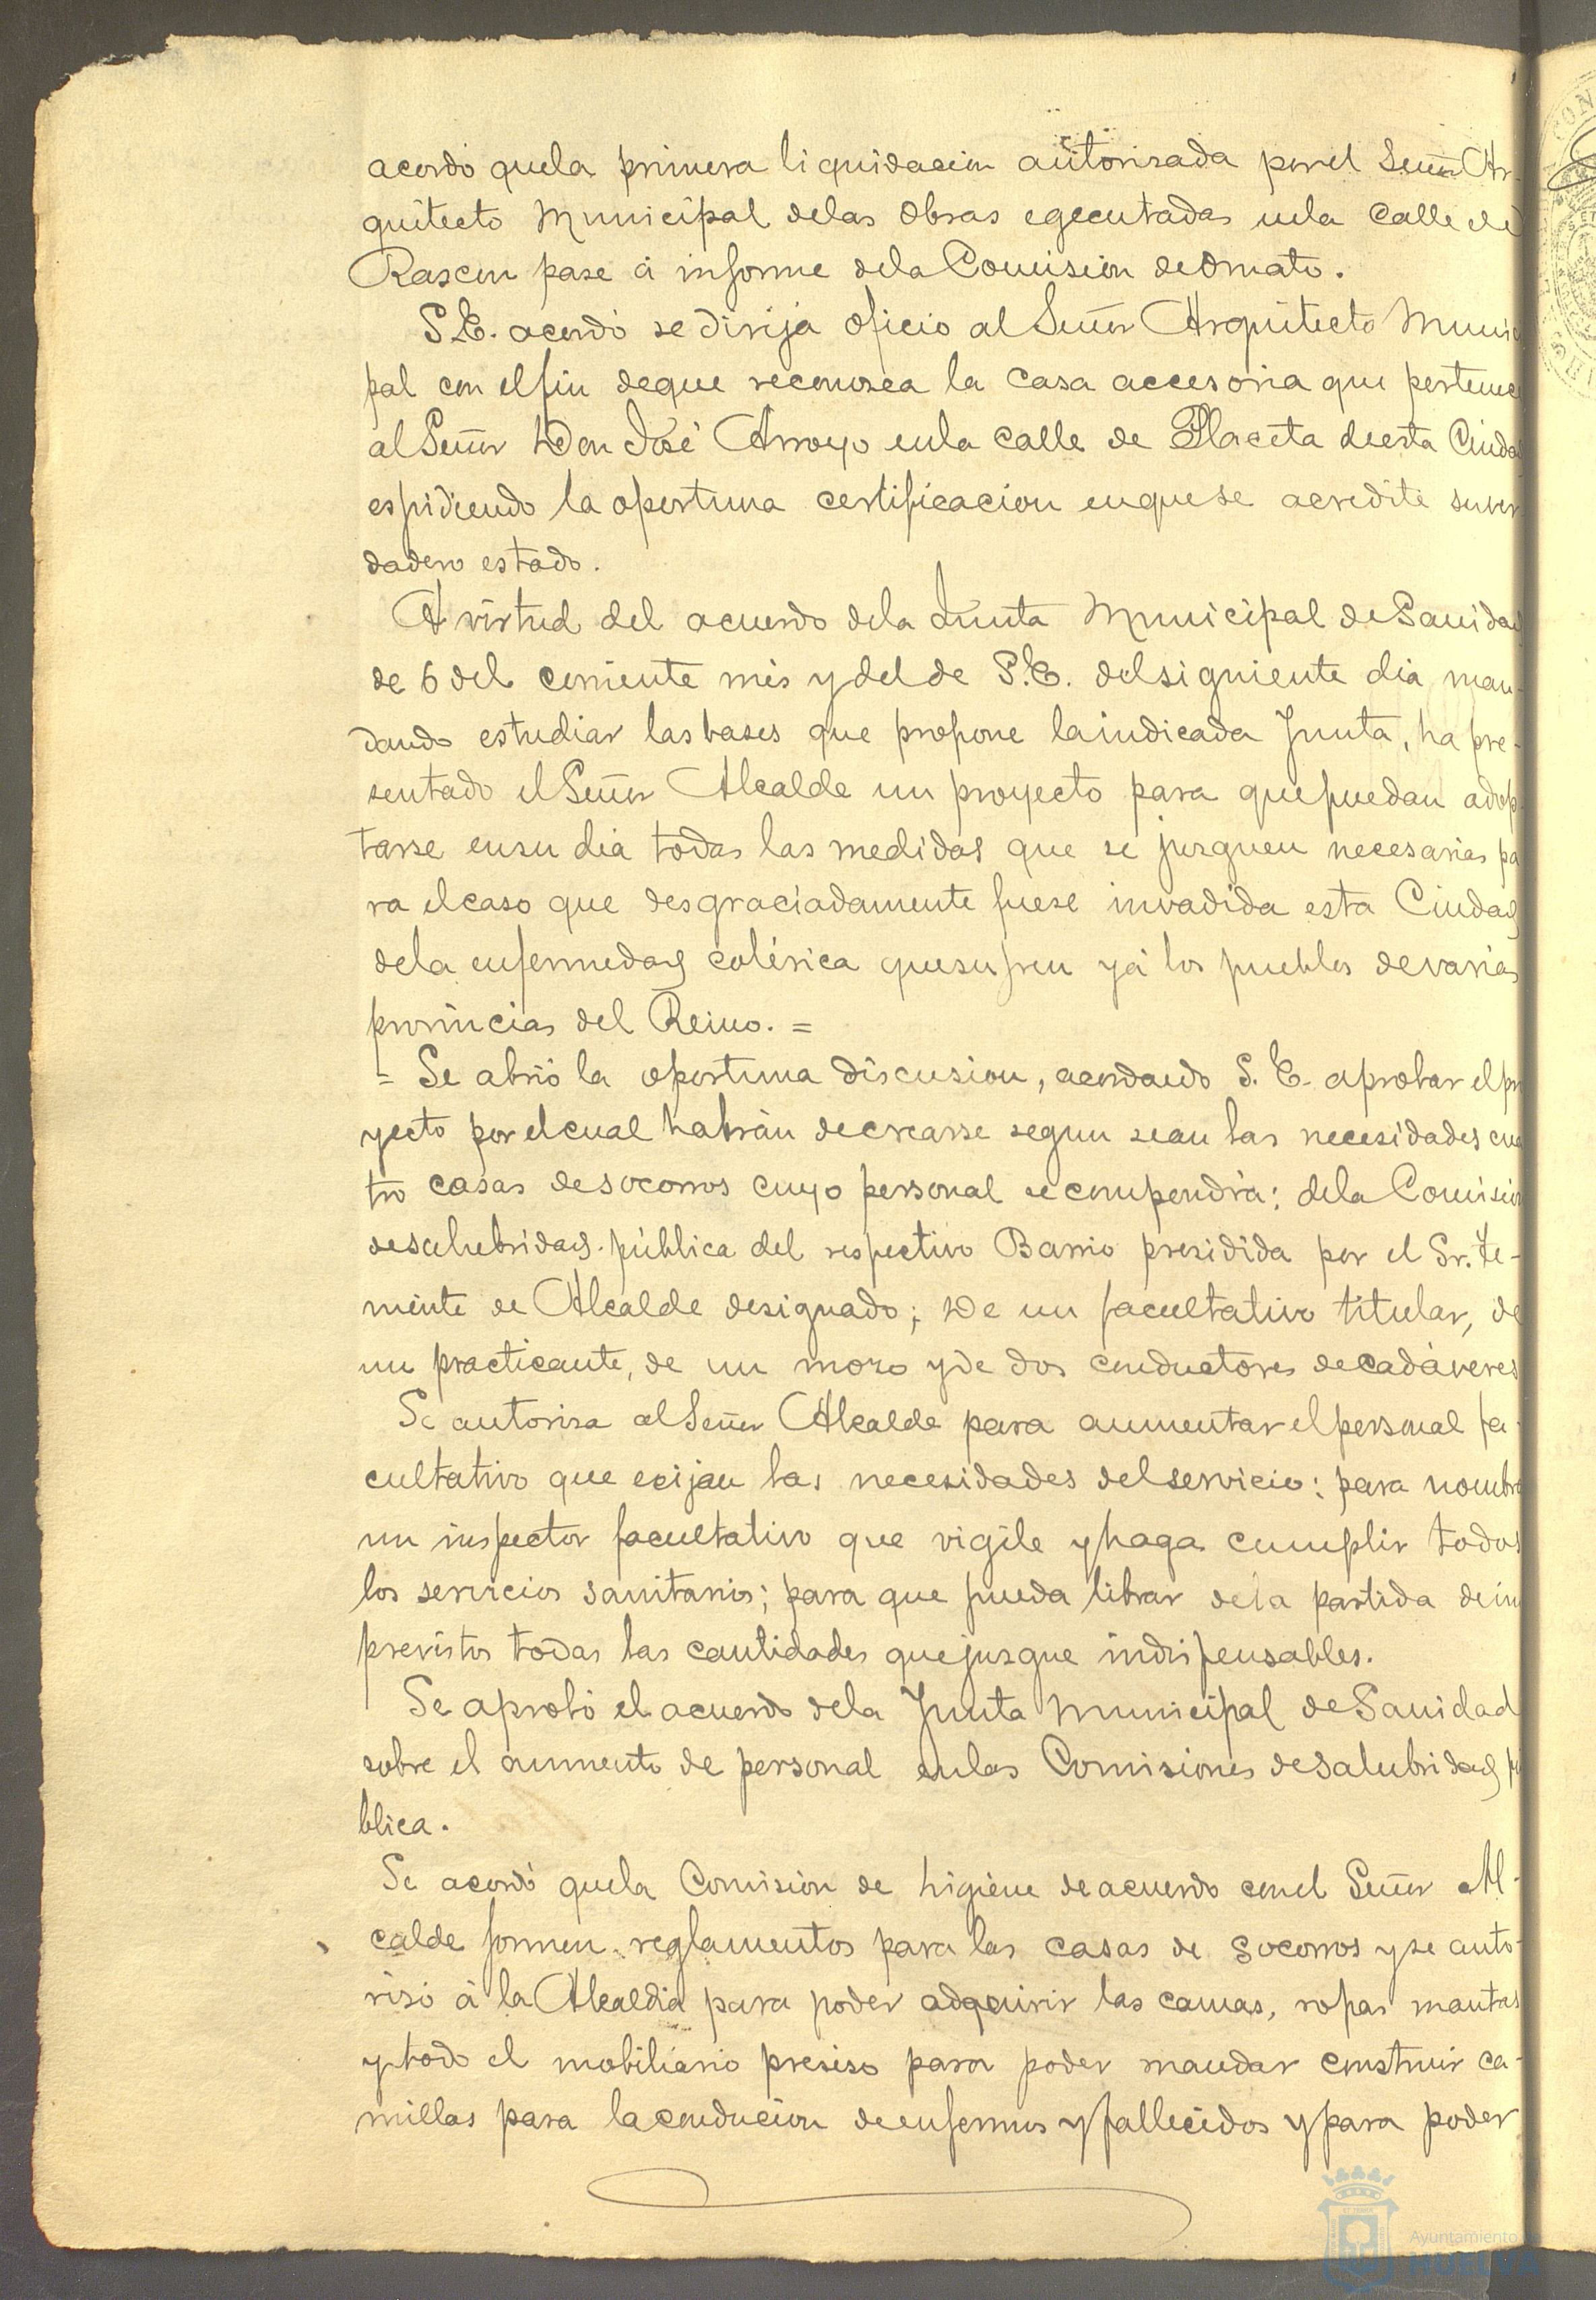 acordó quela primera liquidacion autorisada porel Señor Ar-
quitecto Municipal delas obras egecutadas enla calle del
Rascon pase á informe dela Comision deornato.
S.E. acordó se dirija oficio al Señor Arquitecto Munici
pal con elfin deque reconosca la casa accesoria que pertenece
al Señor Don José Arroyo enla calle de Placeta deesta Ciudad
espidiendo la oportuna certificacion enquese acredite suver
dadero estado.
A virtud del acuerdo dela Junta Municipal deSanidad
de 6 del corriente més y del de S.E. delsiguiente dia man-
dando estudiar lasbases que propone laindicada Junta, ha pre-
sentado elSeñor Alcalde un proyecto para quepuedan adop
tarse ensu dia todas las medidas que se jusguen necesarias pa
ra elcaso que desgraciadamente fuese invadida esta Ciudad
dela enfermedad colérica quesufren yá los pueblos devarias
provincias del Reino. =
= Se abrió la oportuna discusion, acordando S.E. aprobar elpro
yecto por elcual habrán decrearse segun sean las necesidades cua
tro casas desocorros cuyo personal se compondrá: dela Comision
desalubridad pública del respectivo Barrio presidida por el Sr. Te-
niente de Alcalde designado; De un facultativo titular, de
un practicante, de un moso y de dos conductores decadáveres
Se autorisa alSeñor Alcalde para aumentar elpersonal fa-
cultativo que ecijan las necesidades delservicio: para nombra
un inspector facultativo que vigile yhaga cumplir todos
los servicios sanitarios; para que pueda librar dela partida deim
previstos todas las cantidades quejusgue indispensables.
Se aprobó el acuerdo dela Junta Municipal deSanidad
sobre el aumento de personal enlas Comisiones desalubridad pú
blica.
Se acordó quela Comision de higiene deacuerdo conel Señor Al-
calde formen reglamentos para las casas de socorros yse auto-
risó á la Alcaldia para poder adquirir las camas, ropas mantas
ytodo el mobiliario presiso para poder mandar construir ca-
millas para laconducion deenfermos yfallecidos ypara poder
Ayuntamiento de
HUELVA